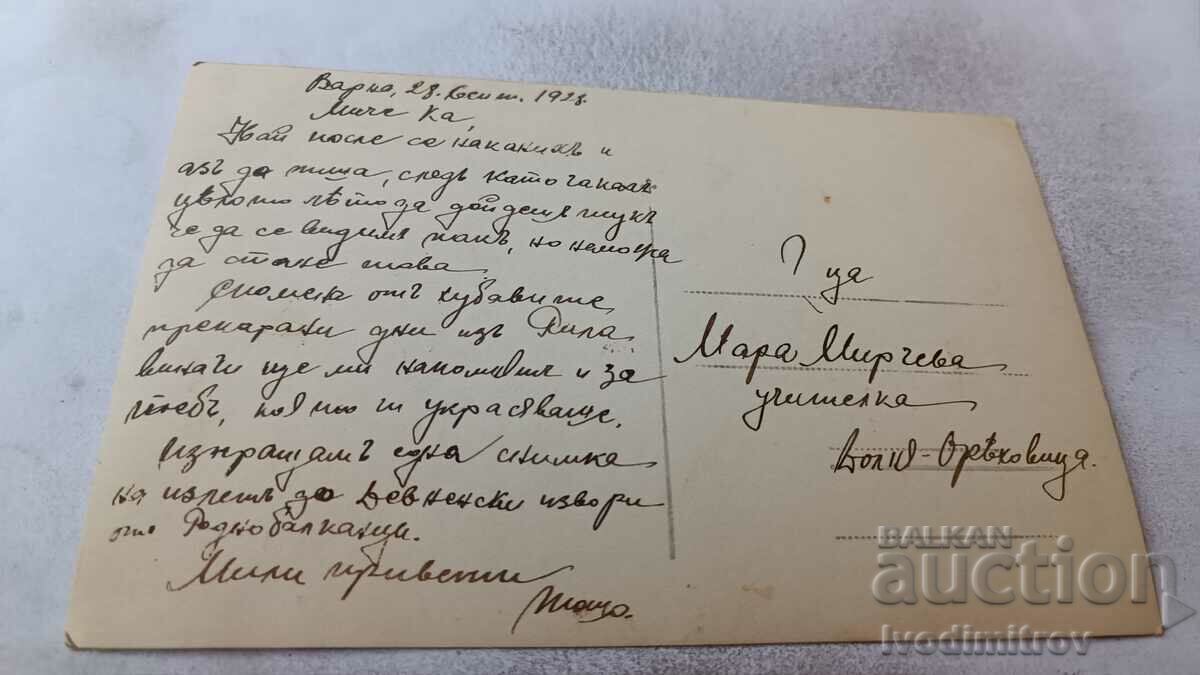 Варна, 28. Септ. 1928.
Миче ка,
Най после се наканихъ и
азъ да пиша, следъ като чакахъ
цѣлото лѣто да дойдешъ тукъ
че да се видимъ пакъ, но неможа
да стане това.
Спомена отъ хубавите
прекарани дни изъ Рила
винаги ще ми напомнятъ и за
тебъ, която ги украсяваше.
Изпращамъ една снимка
на излетъ до Девненски извори
отъ Роднобалканци.
Мили привети
Г ца
Мара Мирчева
учителка
Долня-Орѣховица.
BALKAN
auction
Ivodimitrov